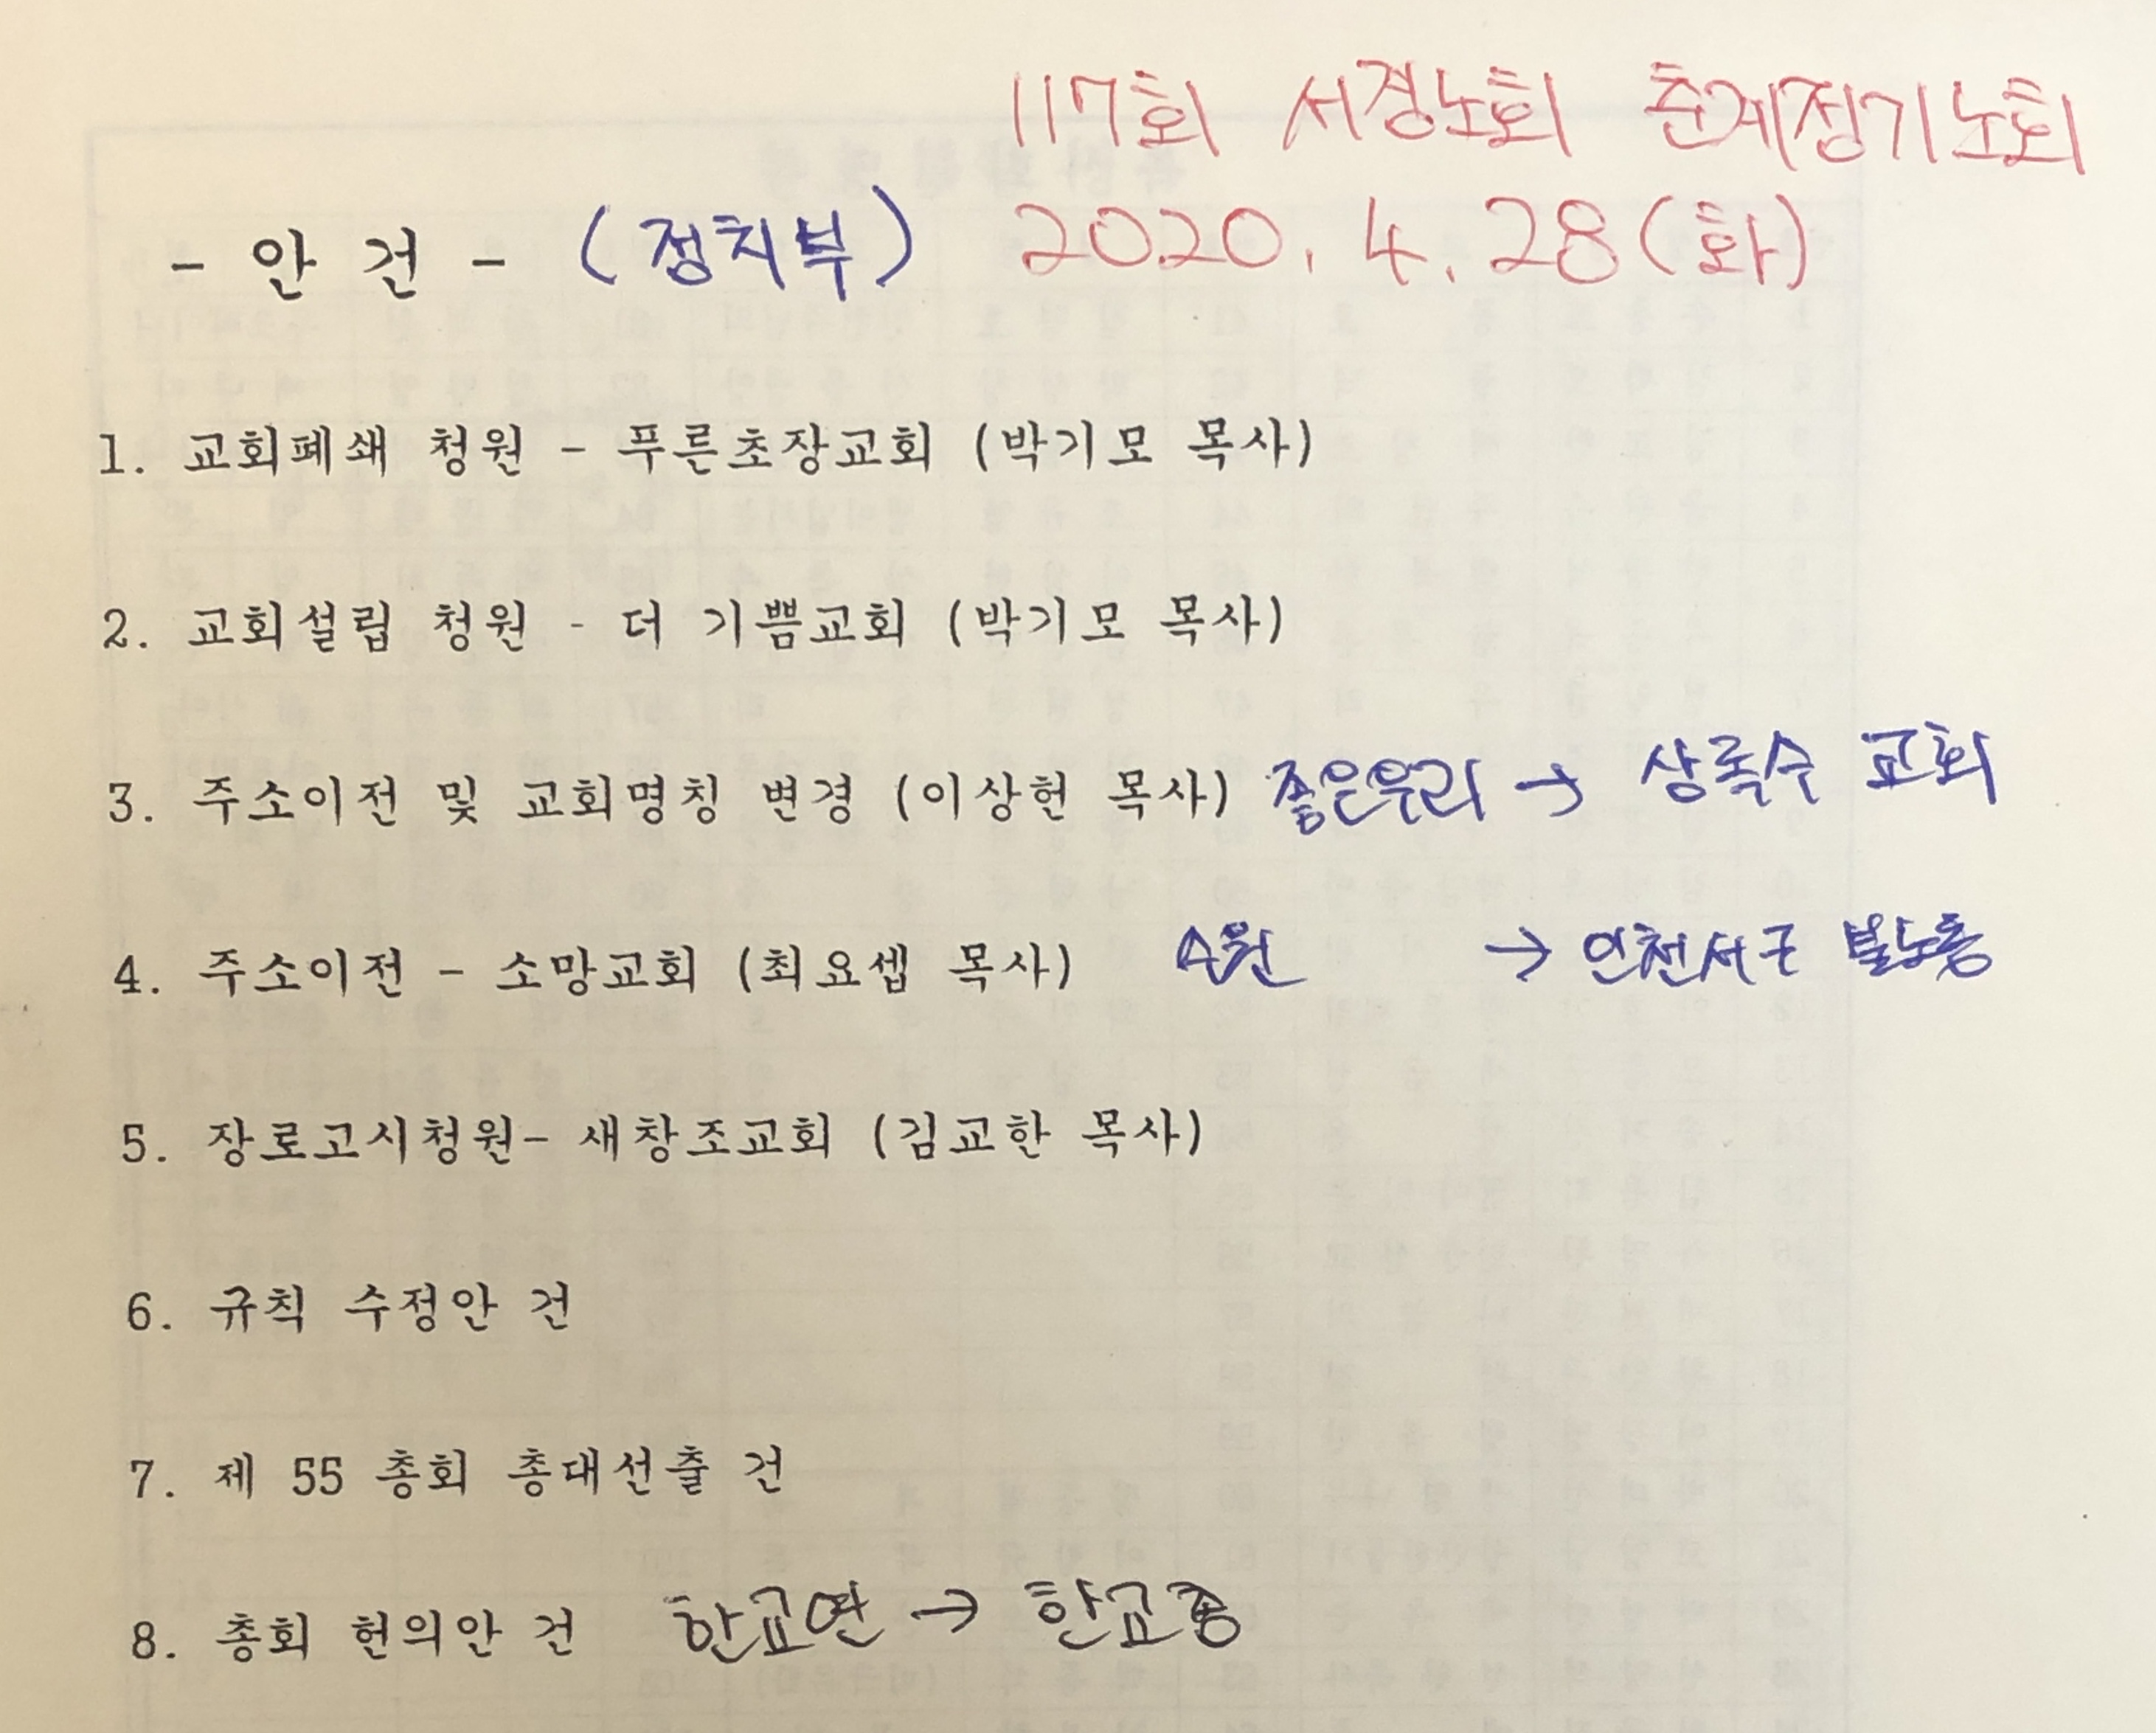 117회 서경노회 춘계정기노회
- 안 건 - (정치부) 2020. 4. 28(화)
1. 교회폐쇄 청원 - 푸른초장교회 (박기모 목사)
2. 교회설립 청원 - 더 기쁨교회 (박기모 목사)
3. 주소이전 및 교회명칭 변경 (이상헌 목사) 좋은우리 → 상록수 교회
4. 주소이전 - 소망교회 (최요셉 목사) 수원 → 인천서구 불노동
5. 장로고시청원- 새창조교회 (김교한 목사)
6. 규칙 수정안 건
7. 제 55 총회 총대선출 건
8. 총회 헌의안 건 한교연 → 한교총